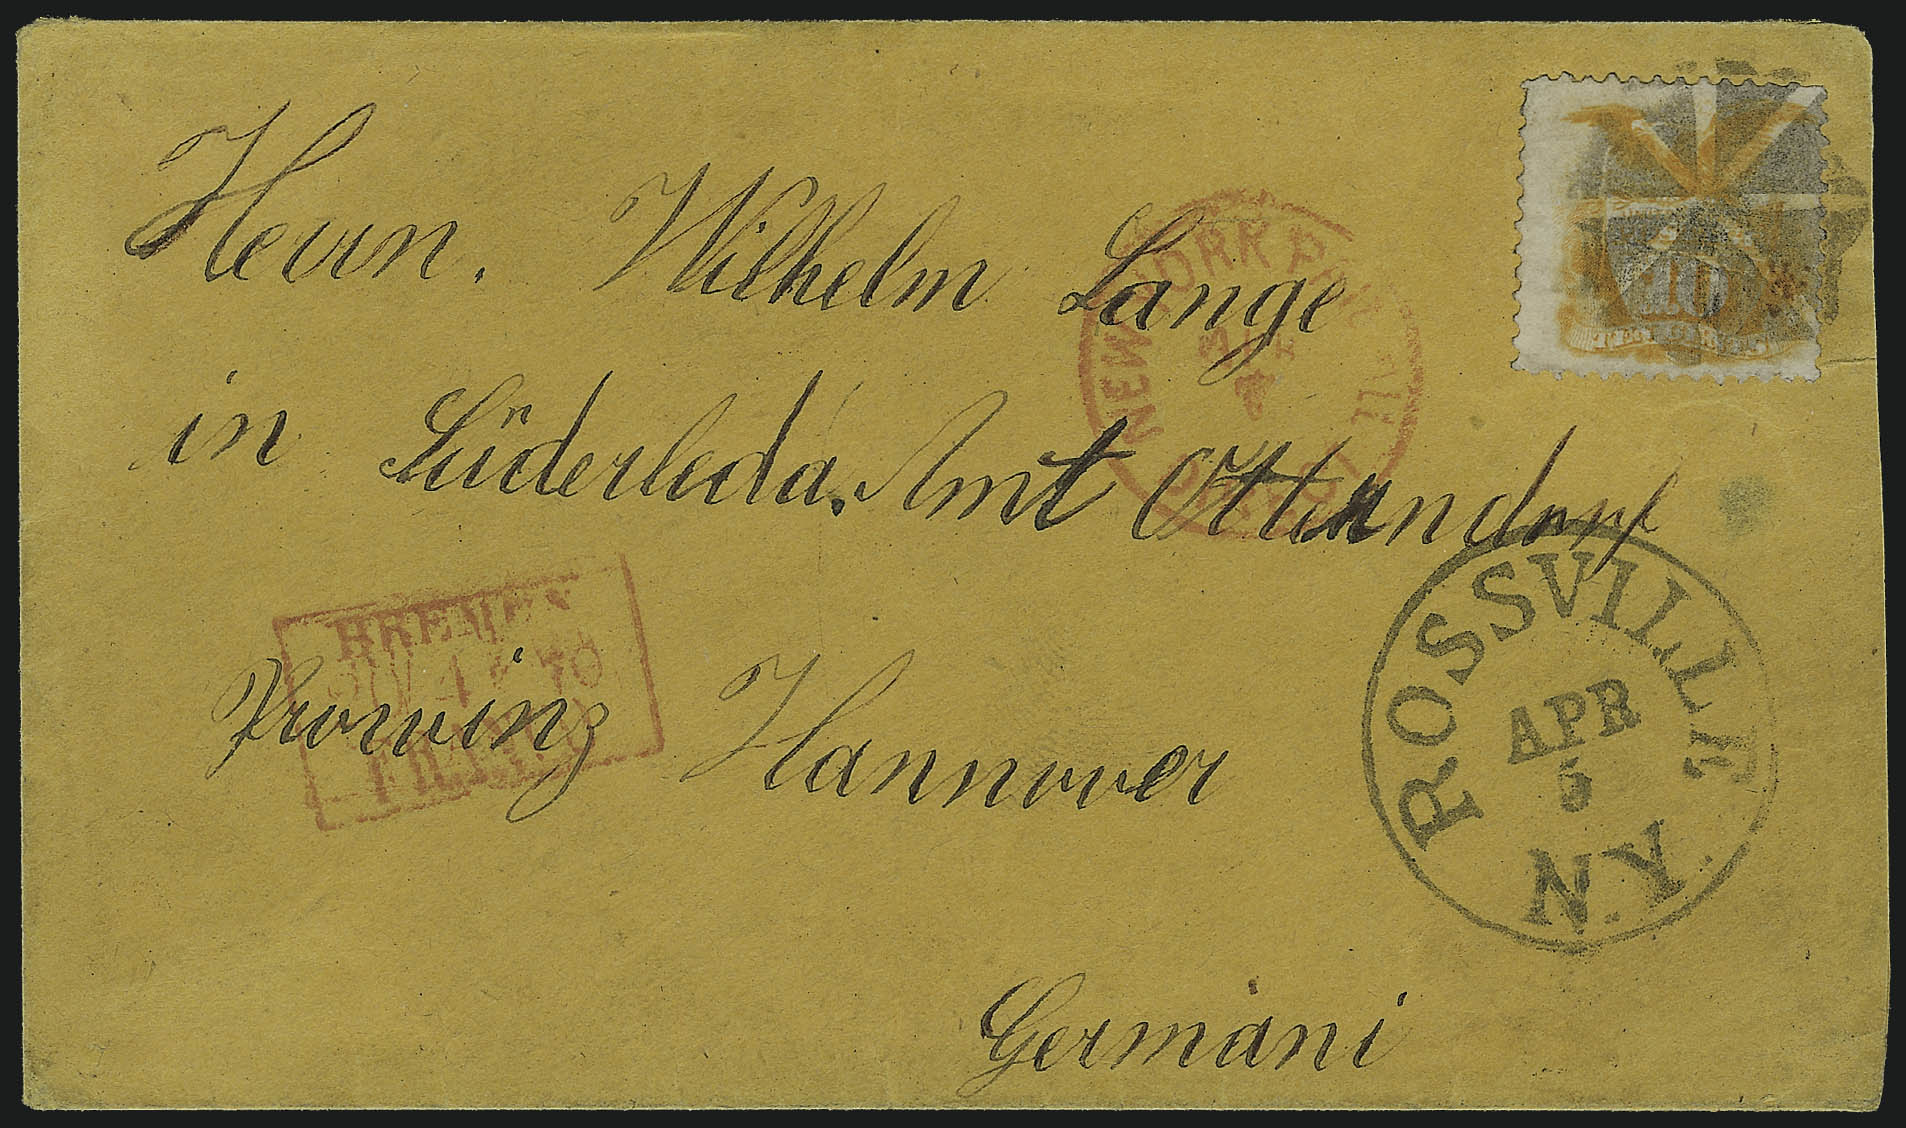 Herrn. Wilhelm Lange
in Süderleda. Amt Otterndorf
Provinz Hannover
Germani
NEW YORK PAID ALL
DIRECT
BREMEN
70
FRANCO
ROSSVILLE
APR
5
N.Y.
10